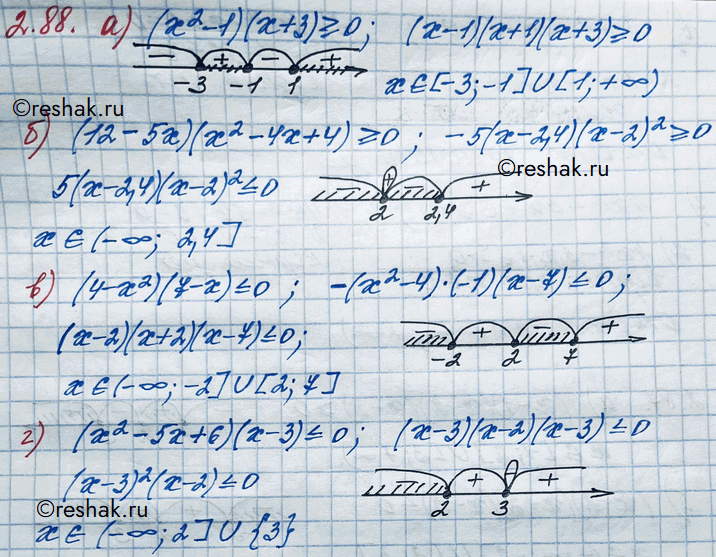 2.88. а) (x²-1)(x+3)≥0; (x-1)(x+1)(x+3)≥0
- + - +
-3 -1 1
x∈[-3;-1]∪[1;+∞)
©reshak.ru
б) (12-5x)(x²-4x+4)≥0; -5(x-2,4)(x-2)²≥0
©reshak.ru
5(x-2,4)(x-2)²≤0
- - +
2 2,4
x∈(-∞; 2,4]
в) (4-x²)(7-x)≤0; -(x²-4)·(-1)(x-7)≤0;
(x-2)(x+2)(x-7)≤0;
- + - +
-2 2 7
x∈(-∞;-2]∪[2;7]
г) (x²-5x+6)(x-3)≤0; (x-3)(x-2)(x-3)≤0
(x-3)²(x-2)≤0
- + +
2 3
©reshak.ru
x∈(-∞;2]∪{3}